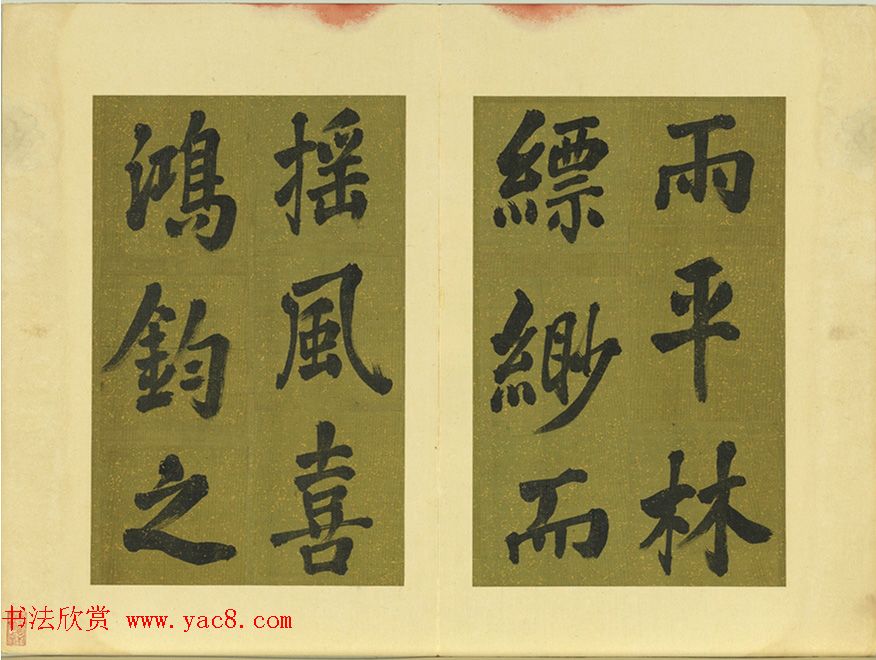 雨平林
縹緲而
揺風喜
鴻鈞之
书法欣赏 www.yac8.com